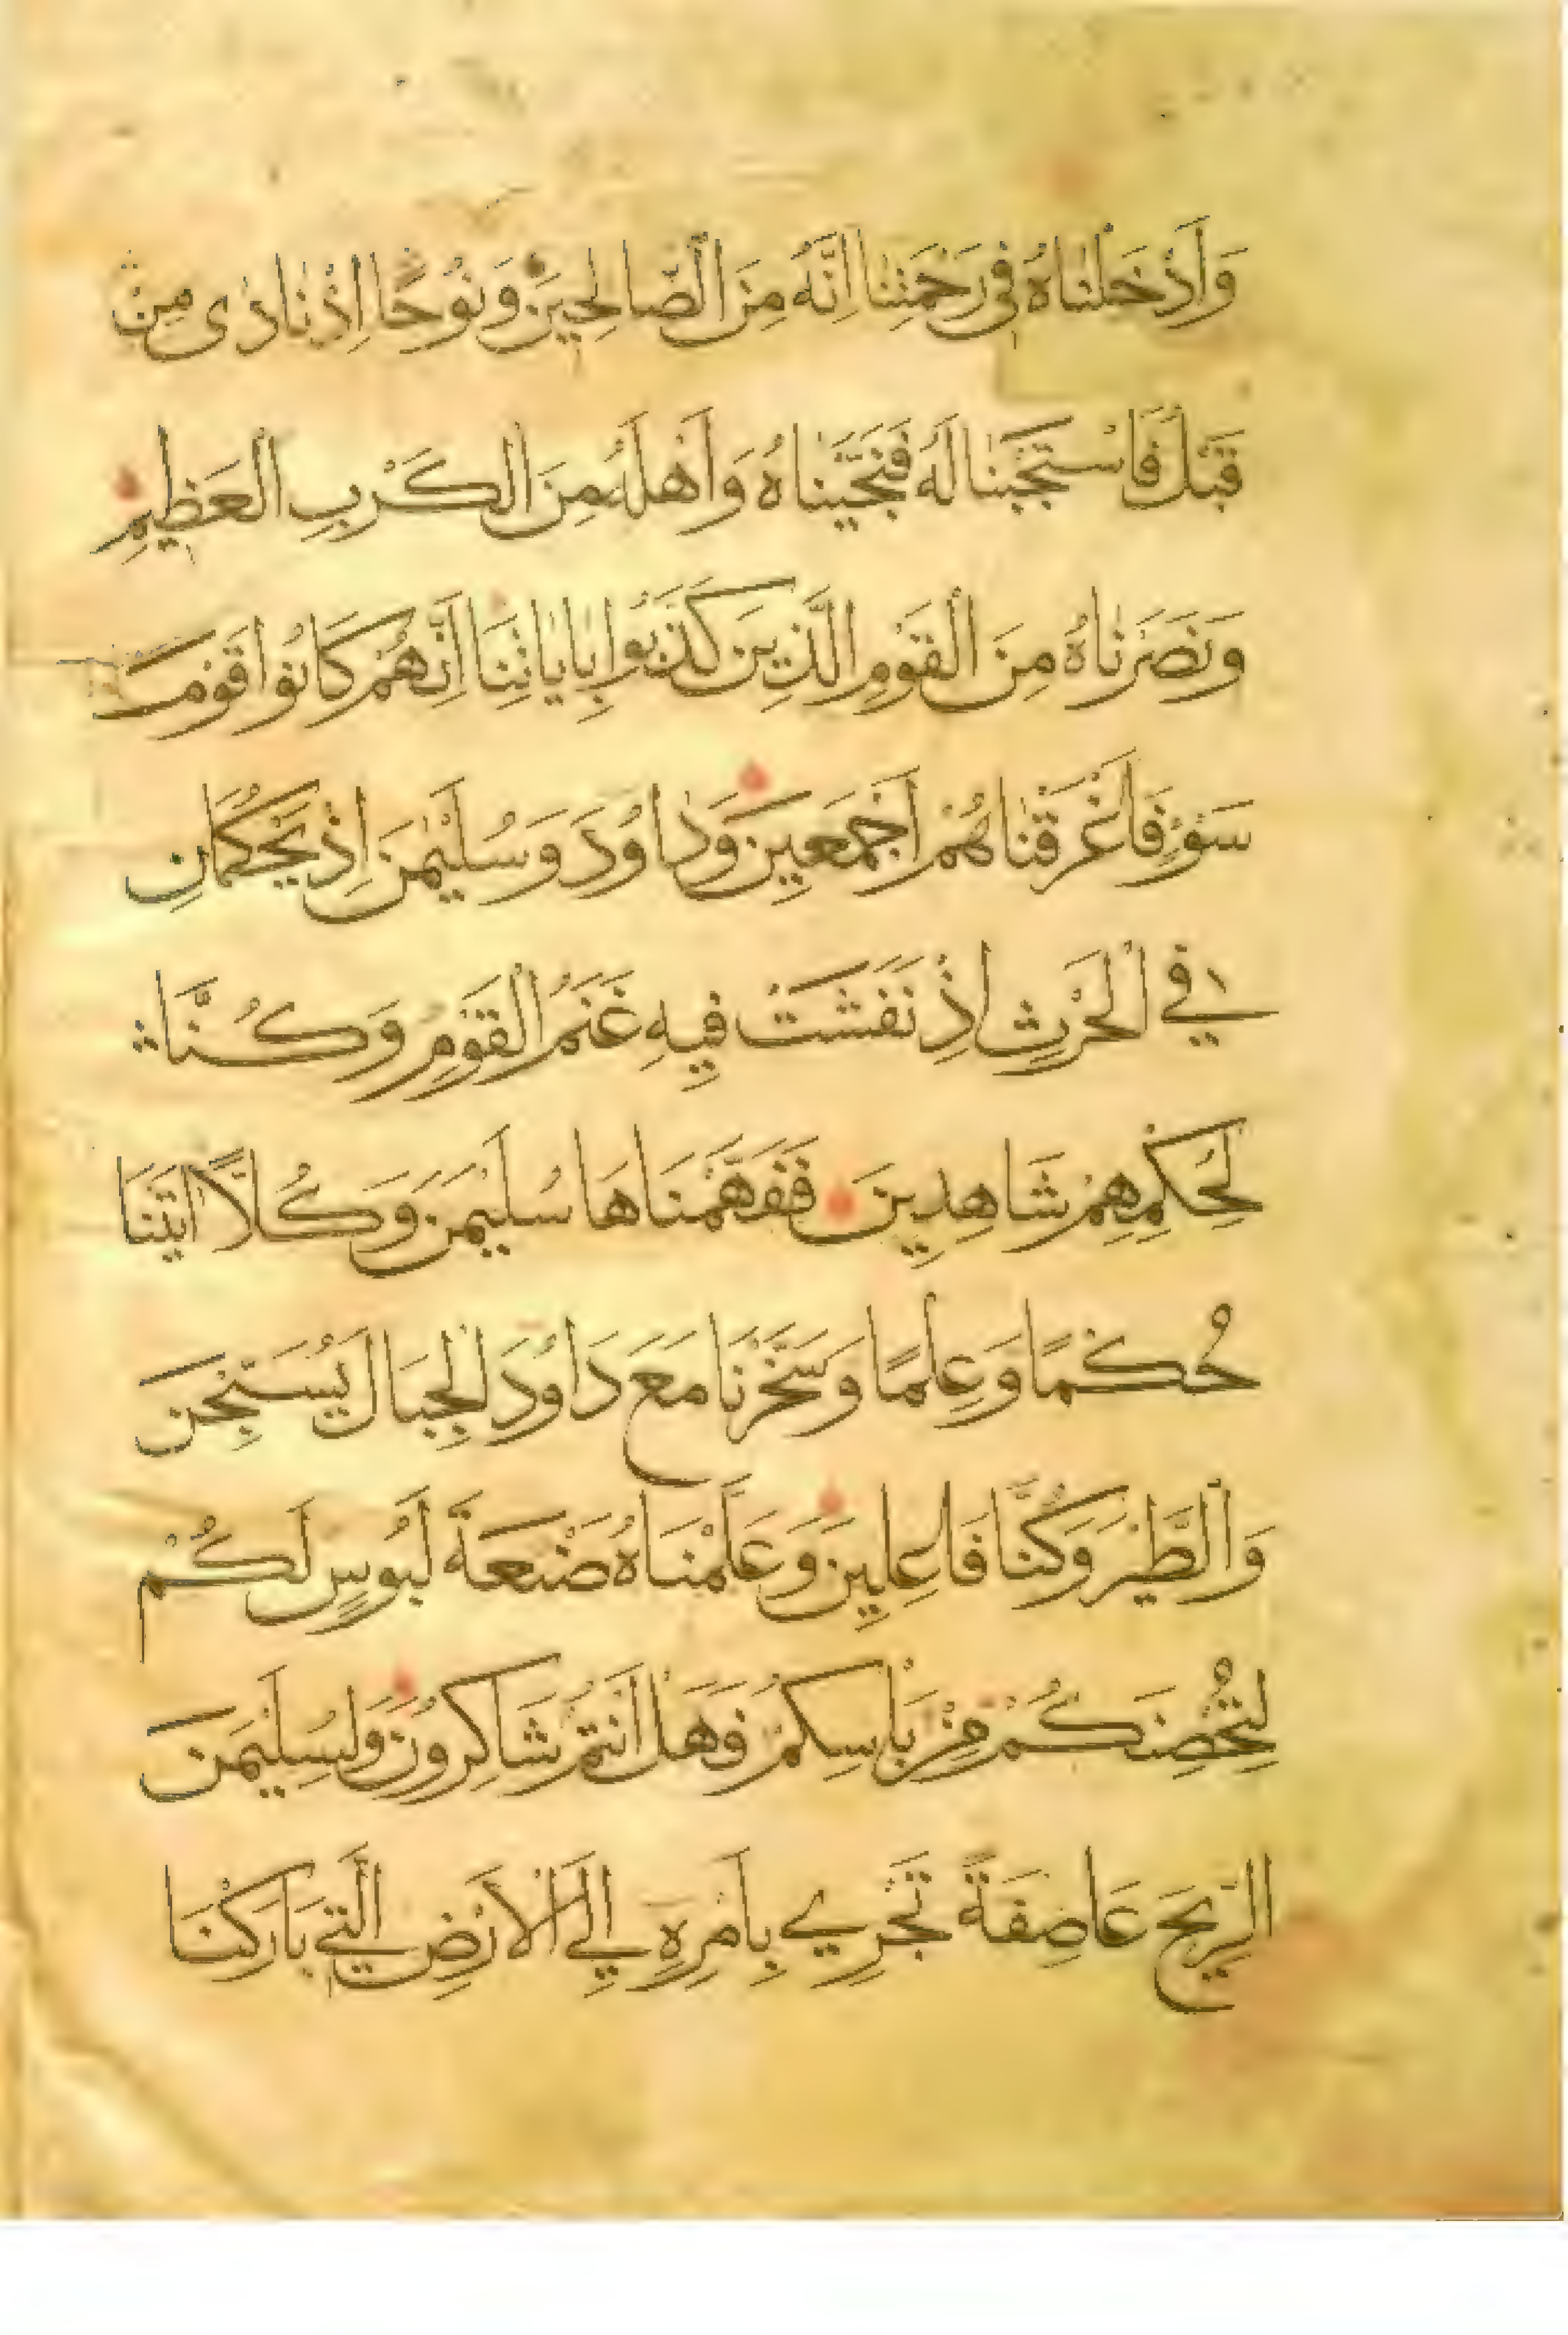 وَأَدْخَلْنَاهُ فِي رَحْمَتِنَا اِنَّهُ مِنَ الصَّالِحِينَ وَنُوحًا اِذْ نَادٰى مِنْ
قَبْلُ فَاسْتَجَبْنَا لَهُ فَنَجَّيْنَاهُ وَأَهْلَهُ مِنَ الْكَرْبِ الْعَظِيمِ
وَنَصَرْنَاهُ مِنَ الْقَوْمِ الَّذِينَ كَذَّبُوا بِاٰيَاتِنَا اِنَّهُمْ كَانُوا قَوْمَ
سَوْءٍ فَأَغْرَقْنَاهُمْ أَجْمَعِينَ وَدَاوُدَ وَسُلَيْمٰنَ اِذْ يَحْكُمَانِ
فِي الْحَرْثِ اِذْ نَفَشَتْ فِيهِ غَنَمُ الْقَوْمِ وَكُنَّا
لِحُكْمِهِمْ شَاهِدِينَ فَفَهَّمْنَاهَا سُلَيْمٰنَ وَكُلًّا اٰتَيْنَا
حُكْمًا وَعِلْمًا وَسَخَّرْنَا مَعَ دَاوُدَ الْجِبَالَ يُسَبِّحْنَ
وَالطَّيْرَ وَكُنَّا فَاعِلِينَ وَعَلَّمْنَاهُ صَنْعَةَ لَبُوسٍ لَكُمْ
لِتُحْصِنَكُمْ مِنْ بَأْسِكُمْ فَهَلْ أَنْتُمْ شَاكِرُونَ وَلِسُلَيْمٰنَ
الرِّيحَ عَاصِفَةً تَجْرِي بِأَمْرِهِ اِلَى الْأَرْضِ الَّتِي بَارَكْنَا